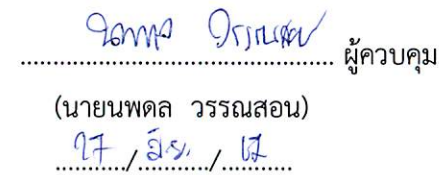 นพดล วรรณสอน ผู้ควบคุม
(นายนพดล วรรณสอน)
27 / มิ.ย. / 67